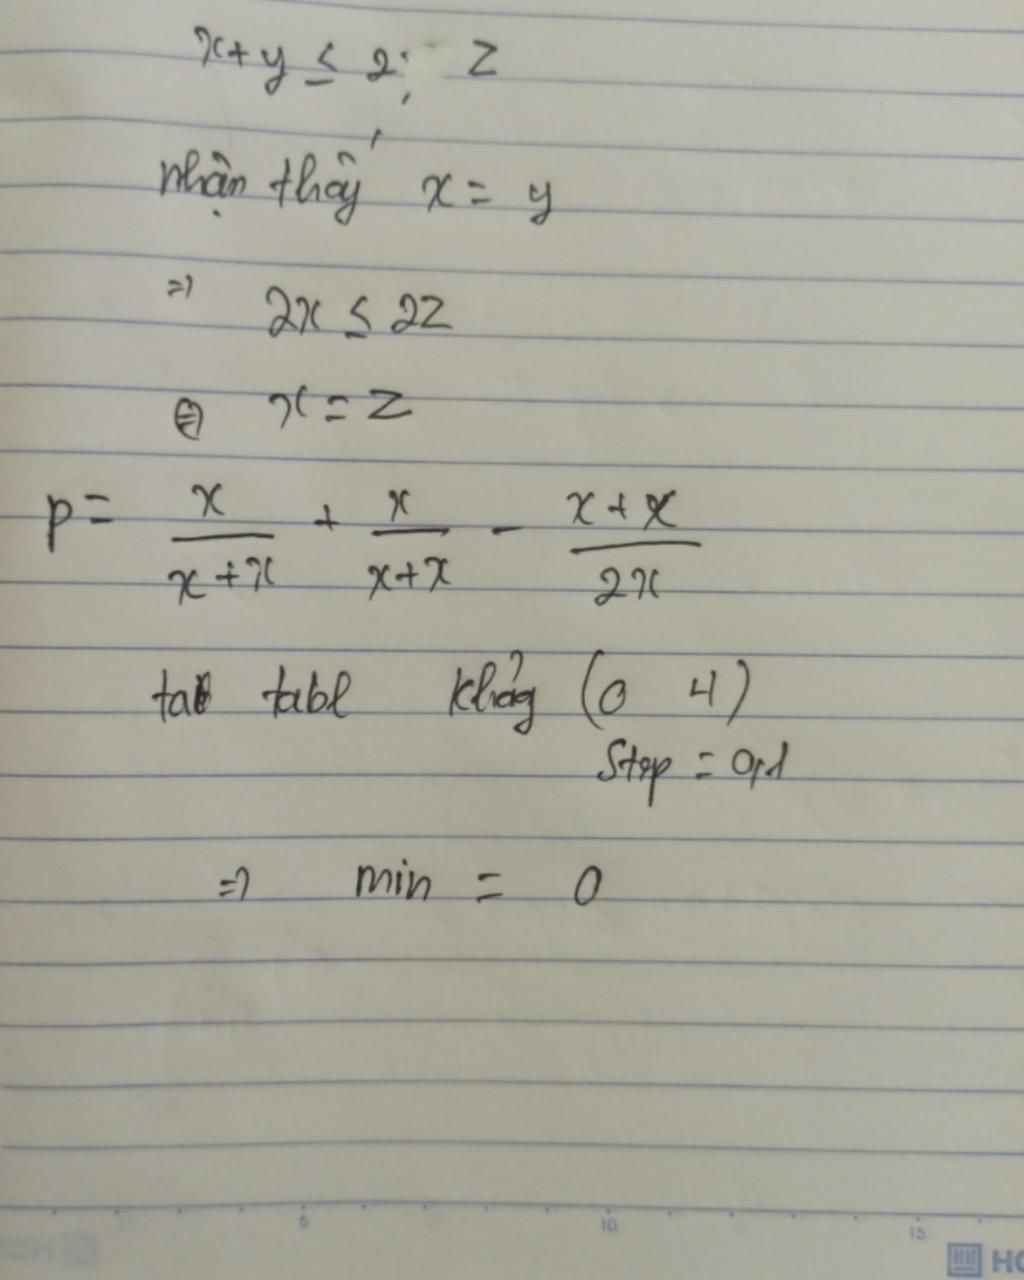 x+y ≤ 2; z
nhận thấy x = y
⇒ 2x ≤ 2z
⇔ x = z
p = x/(x+x) + x/(x+x) - (x+x)/2x
tabl khảg (0 4)
Step = 0,1
⇒ min = 0
5 10 15
HO